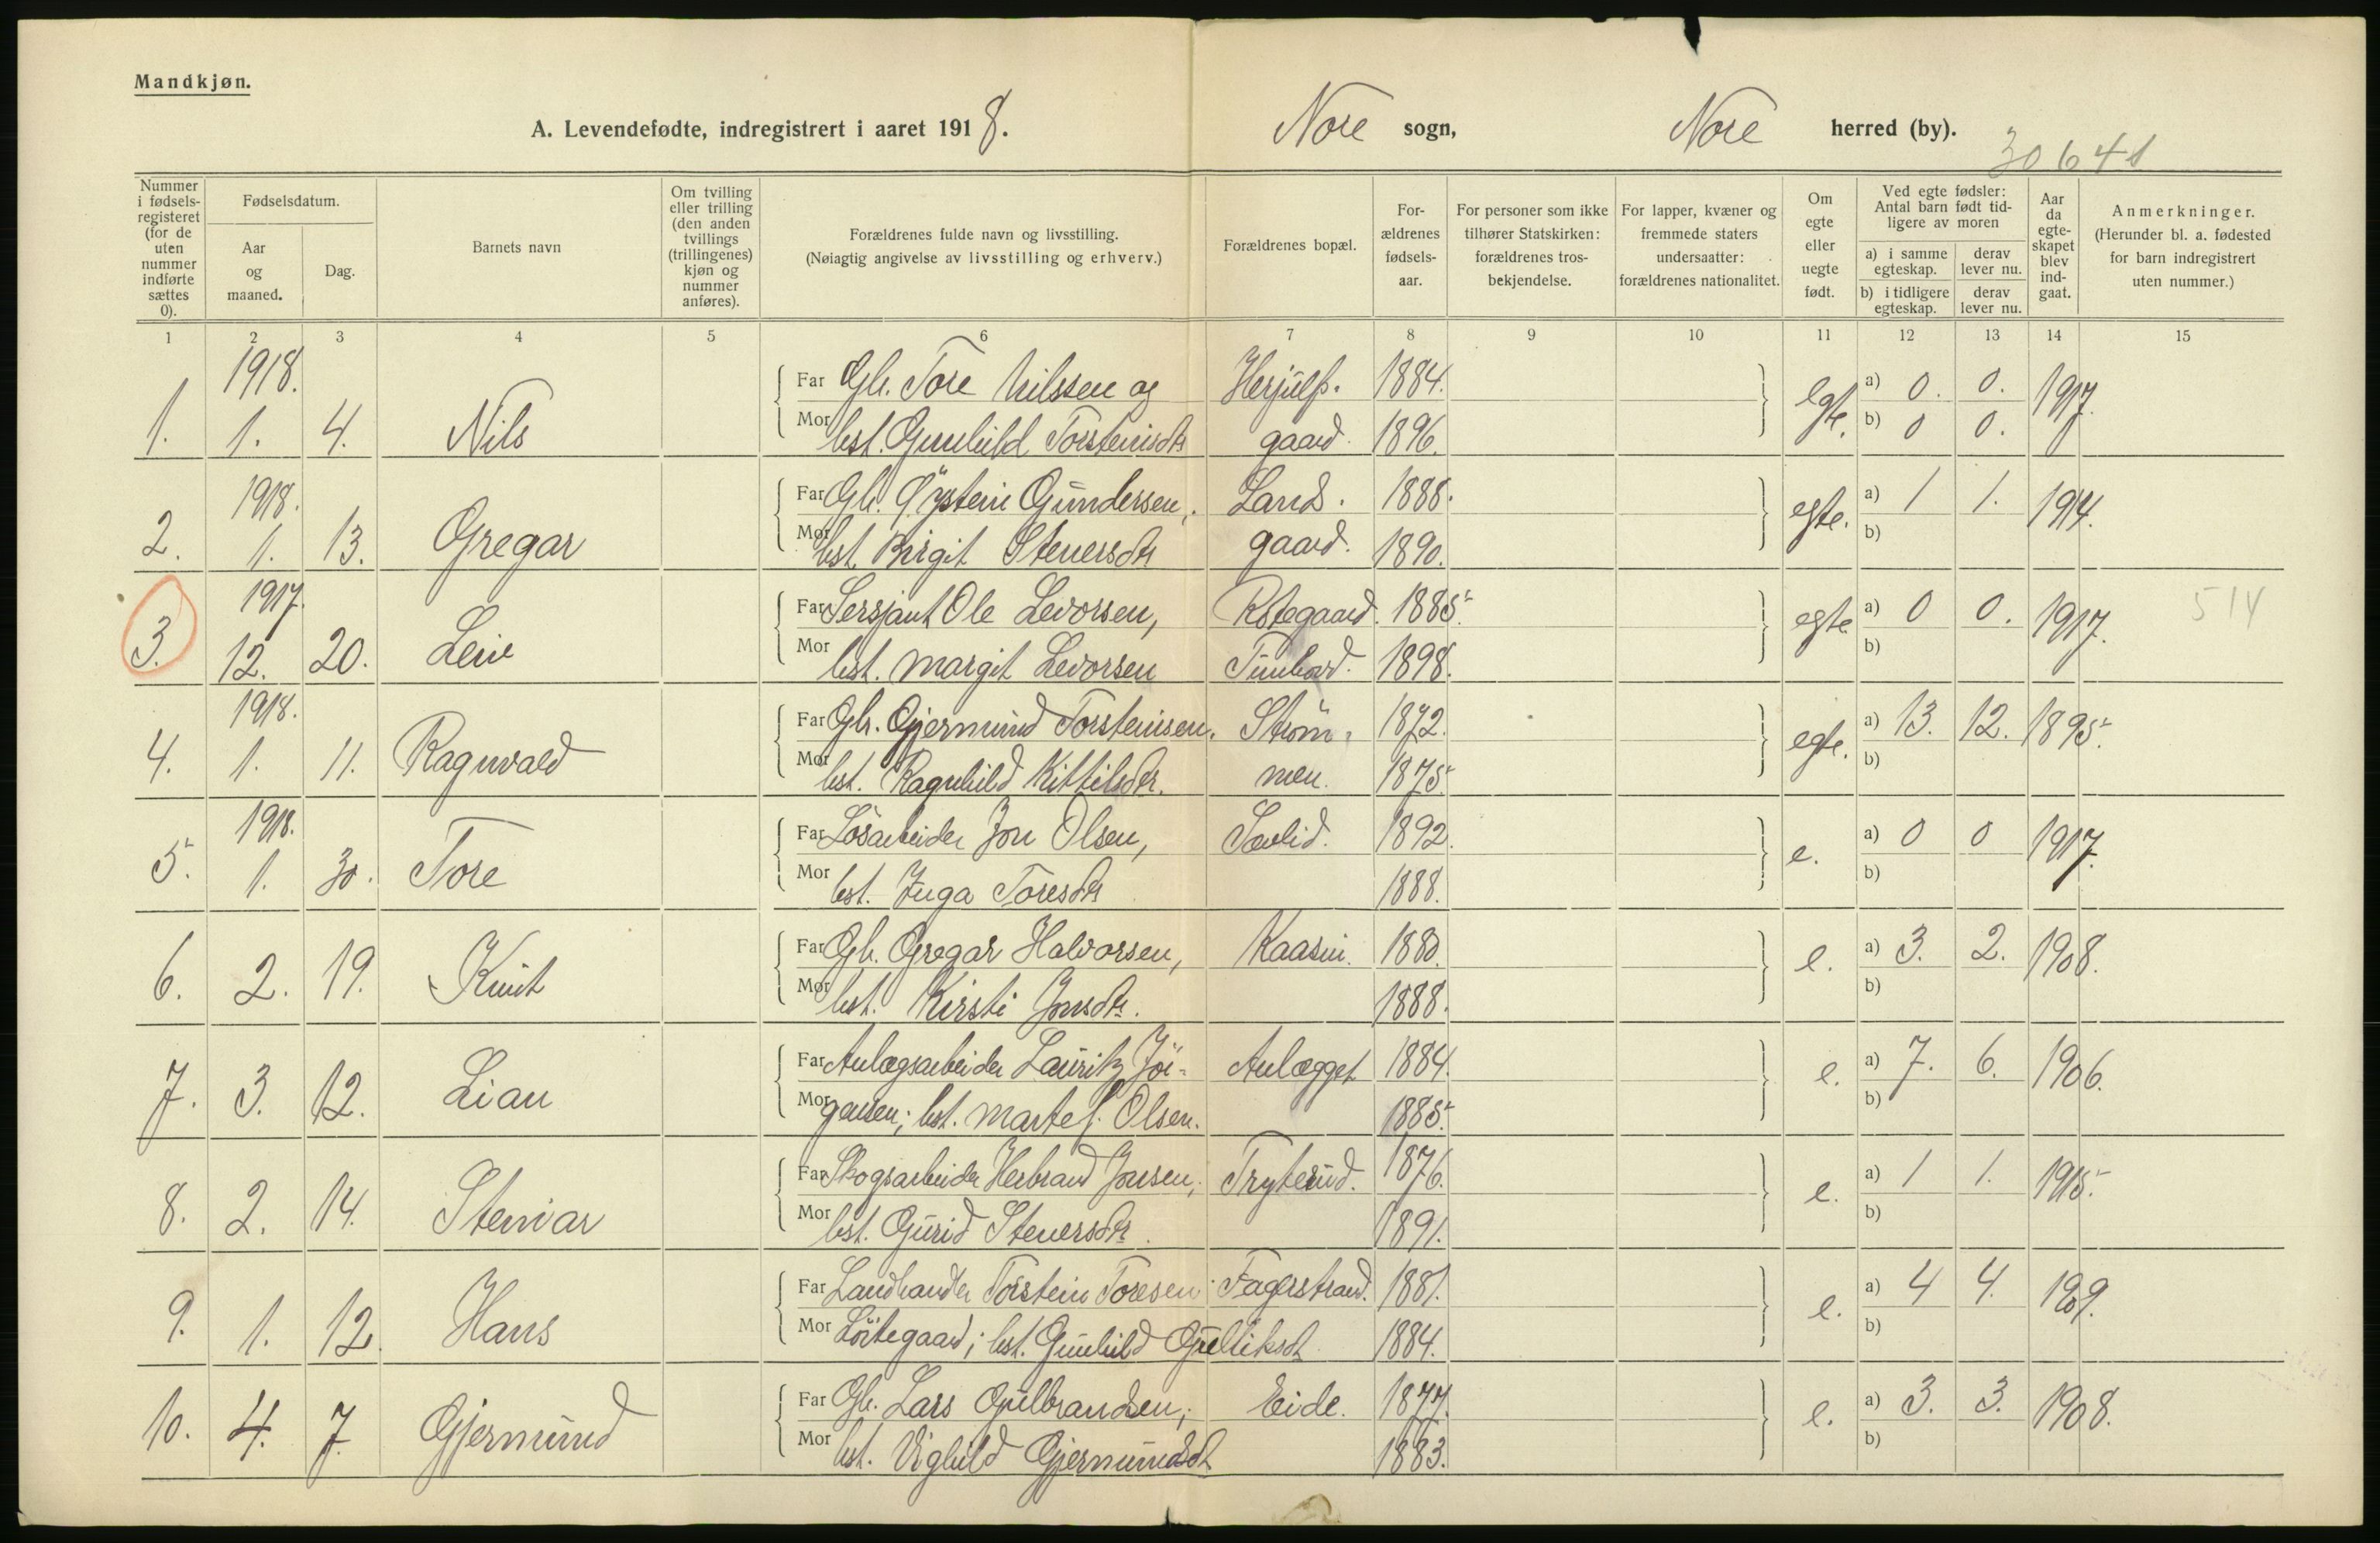 Mandkjøn.
A. Levendefødte, indregistrert i aaret 1918. Nore sogn, Nore herred (by).
30641
Nummer i fødsels-registeret (for de uten nummer indførte sættes 0).
Fødselsdatum.
Aar og maaned.
Dag.
Barnets navn
Om tvilling eller trilling (den anden tvillings (trillingenes) kjøn og nummer anføres).
Forældrenes fulde navn og livsstilling.
(Nøiagtig angivelse av livsstilling og erhverv.)
Forældrenes bopæl.
For-ældrenes fødsels-aar.
For personer som ikke tilhører Statskirken: forældrenes tros-bekjendelse.
For lapper, kvæner og fremmede staters undersaatter: forældrenes nationalitet.
Om egte eller uegte født.
Ved egte fødsler: Antal barn født tid-ligere av moren
a) i samme egteskap. derav lever nu.
b) i tidligere egteskap. derav lever nu.
Aar da egte-skapet blev ind-gaat.
Anmerkninger.
(Herunder bl. a. fødested for barn indregistrert uten nummer.)
1 2 3 4 5 6 7 8 9 10 11 12 13 14 15
1918. Far Gbr. Tore Nilssen og Herjulfs- 1884. egte. a) 0. 0. 1917.
1. 1. 4. Nils Mor hst. Gunhild Torsteinsdtr gaard. 1896. b) 0 0.
1918. Far Gbr. Øystein Gundersen, Land- 1888. egte. a) 1 1. 1914.
2. 1. 13. Gregar Mor hst. Birgit Steversdtr gaard. 1890. b)
1917. Far Sersjant Ole Levorsen, 1885. egte a) 0 0. 1917. 514
3. 12. 20. Leiv Mor hst. Margit Levorsen 1898. b)
1918. Far Gbr. Gjermund Torsteinsen. Strøm- 1872. egte. a) 13. 12. 1895.
4. 1. 11. Ragnvald Mor hst. Ragnhild Kittilsdtr. men. 1875. b)
1918. Far Løsarbeider Jon Olsen, 1892. e. a) 0 0 1917.
5. 1. 30. Tore Mor hst. Inga Toresdtr 1888. b)
Far Gbr. Gregar Halvorsen, Kaasin. 1880. e. a) 3. 2. 1908.
6. 2. 19. Knut Mor hst. Kirsti Jonsdtr. 1888. b)
Far Anlægsarbeider Lauritz Jör- Anlægget 1884. e. a) 7. 6. 1906.
7. 3. 12. Lian Mor gensen; hst. Marte f. Olsen. 1885. b)
Far Skogsarbeider Herbrand Jonsen; Tryterud. 1876. e. a) 1 1. 1915.
8. 2. 14. Steinar Mor hst. Gurid Steversdtr. 1891. b)
Far Landhandler Torstein Toresen Fagerstrand. 1881. e. a) 4 4. 1909.
9. 1. 12. Hans Mor Löitegaard; hst. Gunhild Gulliksdt. 1884. b)
Far Gbr. Lars Gulbrandsen; Eide. 1877. e. a) 3. 3. 1908.
10. 4. 7. Gjermund Mor hst. Vighild Gjermundsdt 1883. b)